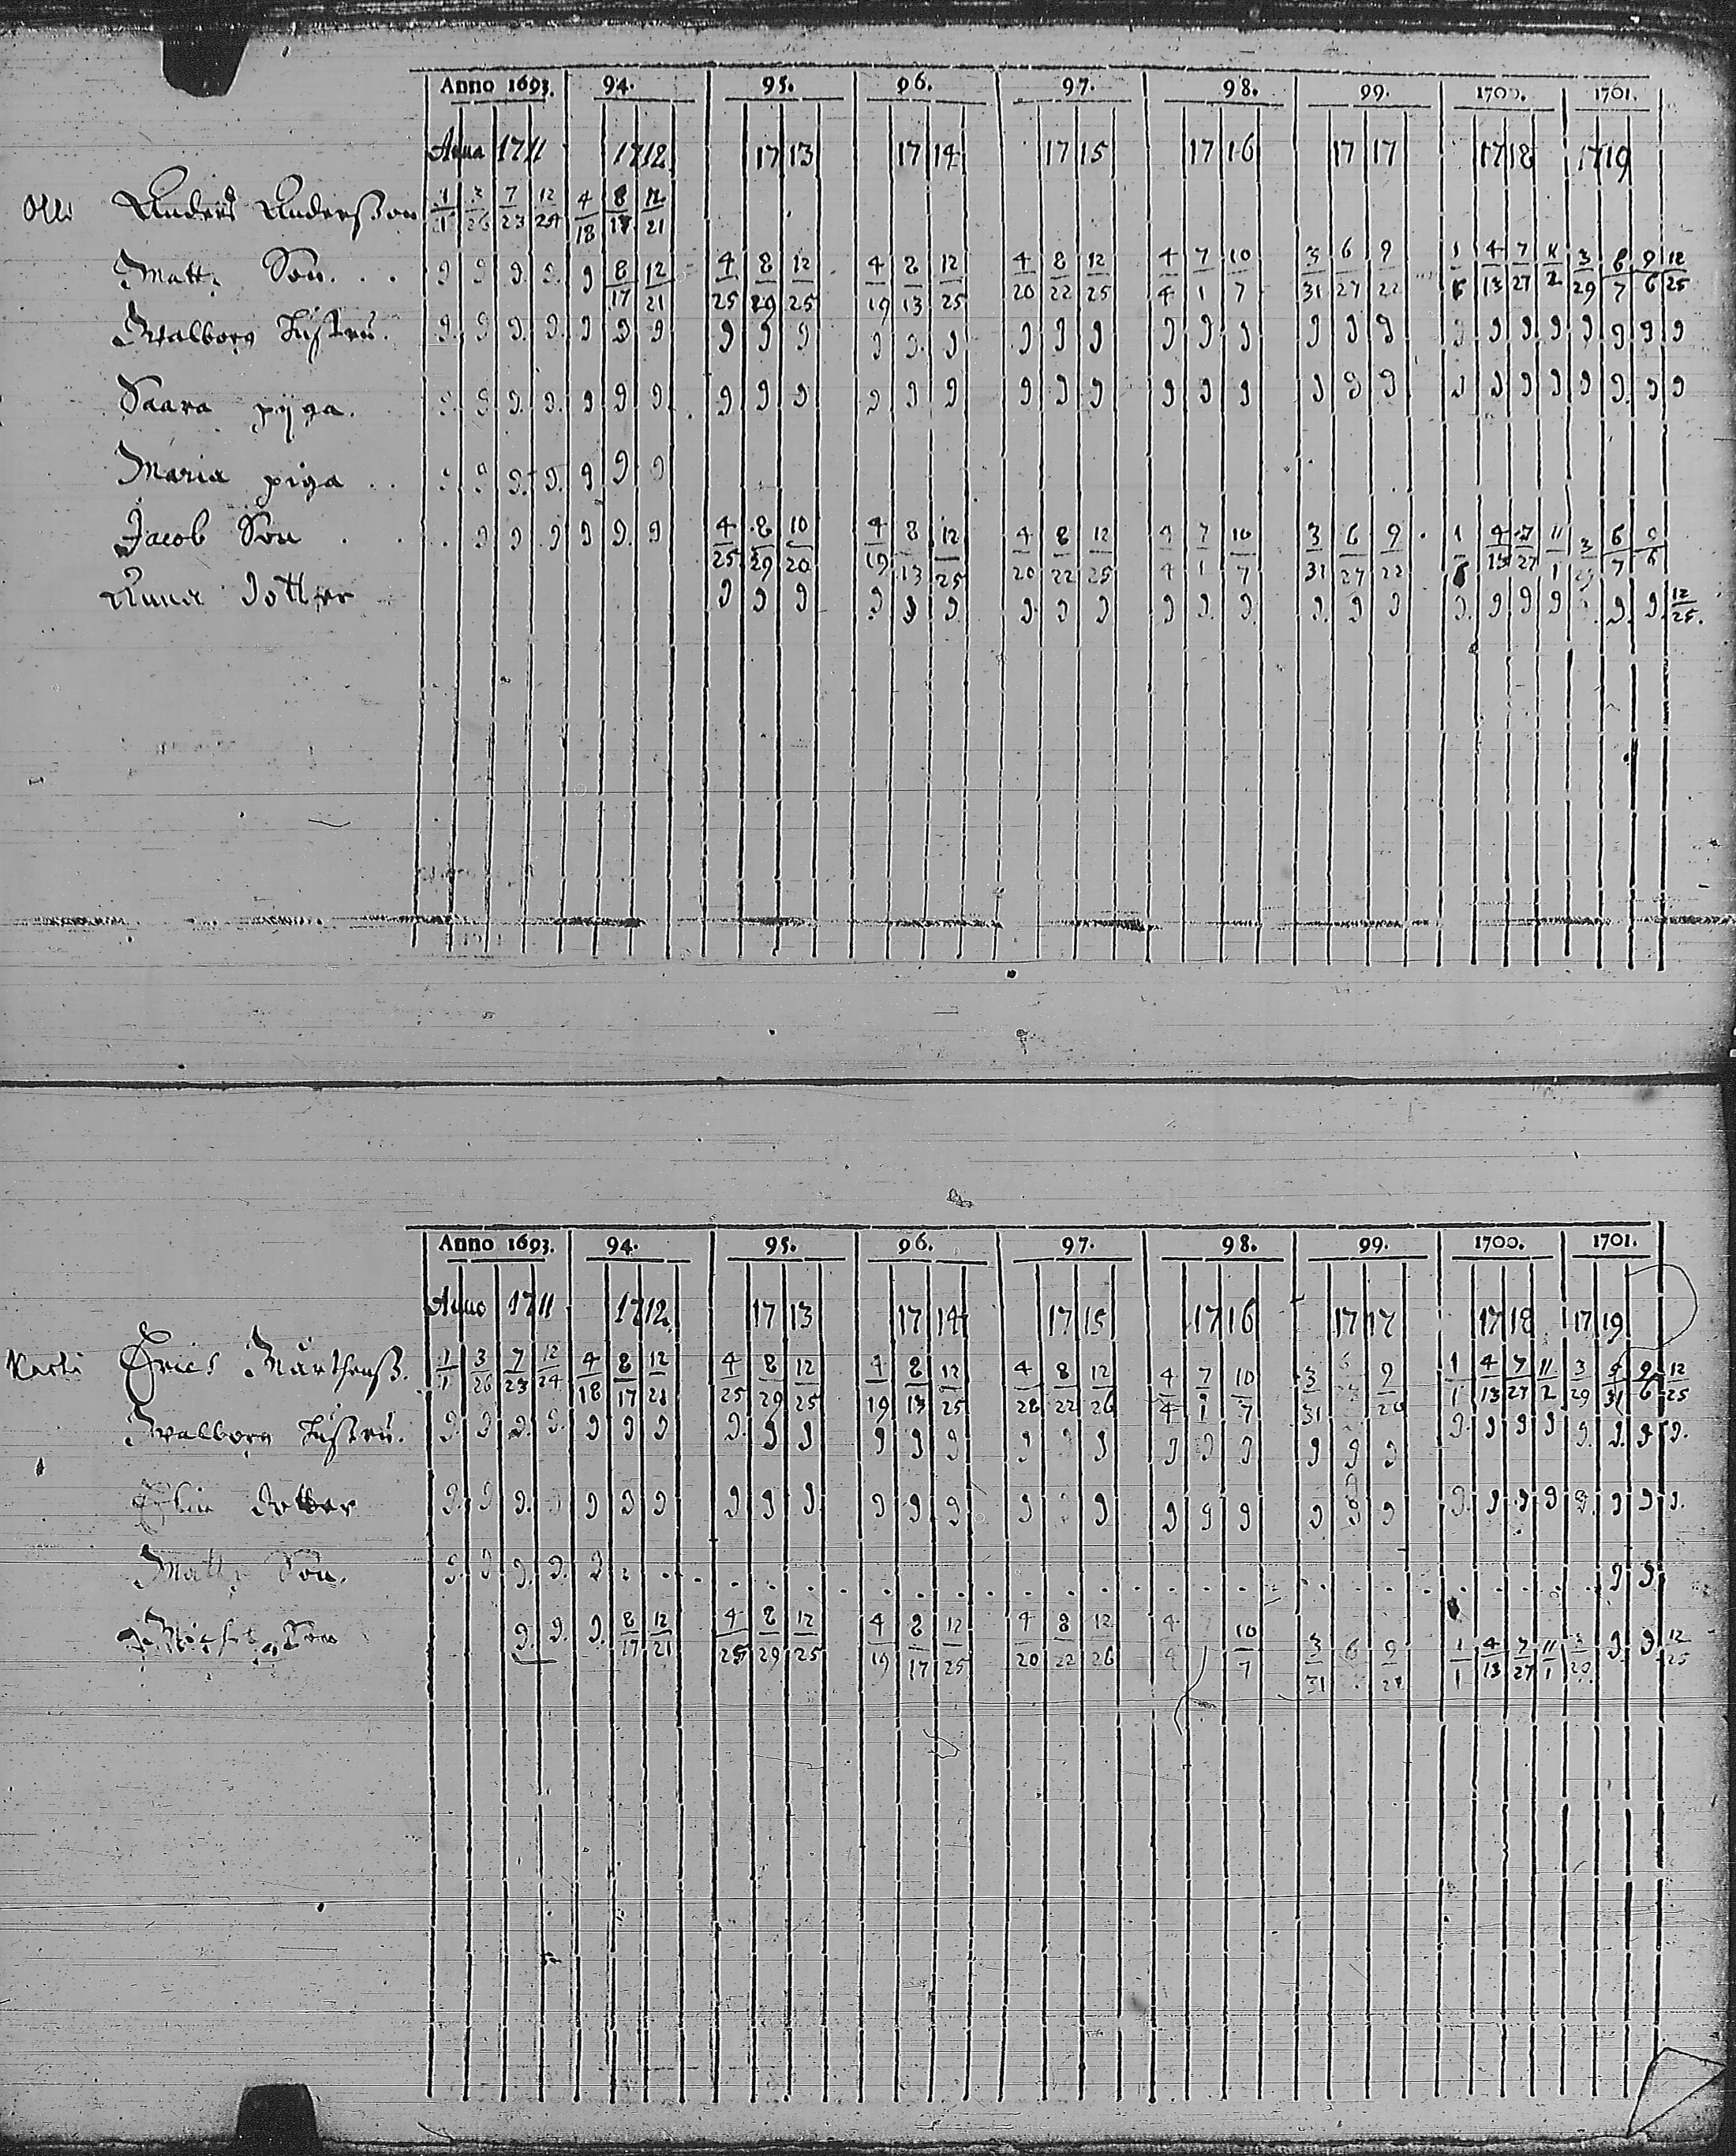 Anno 1693. 94. 95. 96. 97. 98. 99. 1700. 1701.
Anno 1711 1712 1713 1714 1715 1716 1717 1718 1719
Olli Anders Andersson 1/1 3/26 7/23 12/24 4/18 8/17 12/21
Matts Son. 9 9 9. 9. 9 8/17 12/21 4/25 8/29 12/25 4/19 8/13 12/25 4/20 8/22 12/25 4/4 7/1 10/7 3/31 6/27 9/22 1/6 4/13 7/27 11/2 3/29 6/7 9/6 12/25
Walborg hustru. 9. 9 9. 9. 9 9 9 9 9 9 9 9. 9 9 9 9 9 9 9 9 9 9 9 9 9 9 9 9 9 9
Saara pijga. 9. 9 9. 9. 9 9 9 9 9 9 9 9 9 9 9 9 9 9 9 9 9 9 9 9 9 9 9 9. 9 9
Maria piga 9 9 9. 9. 9 9 9
Jacob Son 9 9 9 9 9. 9 4/25 8/29 10/20 4/19 8/13 12/25 4/20 8/22 12/25 4/4 7/1 10/7 3/31 6/27 9/22 1 4/13 7/27 11/1 3/29 6/7 9/6
Anna dotter 9 9 9 9. 9 9. 9. 9 9 9 9. 9. 9. 9 9 9. 9 9 9 9. 9. 12/25.
Anno 1693. 94. 95. 96. 97. 98. 99. 1700. 1701.
Anno 1711 1712. 1713 1714 1715 1716 1717 1718 1719
Erics Mårthenß. 1/1 3/26 7/23 12/24 4/18 8/17 12/21 4/25 8/29 12/25 4/19 8/13 12/25 4/28 8/22 12/26 4/4 7/1 10/7 3/31 1/1 4/13 7/27 11/2 3/29 9/6 12/25
Walborg hustru. 9. 9 9. 9. 9 9 9 9. 9 9 9 9 9 9 9 9 9 9 9 9 9 9 9. 9 9 9 9. 9. 9 9.
Elin dotter 9. 9 9. 9 9 9 9 9 9 9. 9 9 9 9 9 9 9 9 9 9. 9 9 9. 9 9 9 9. 9 9 9.
Matts Son. 9. 9 9. 9. 9 9 9.
Son 9. 9. 9. 8/17 12/21 4/25 8/29 12/25 4/19 8/17 12/25 4/20 8/22 12/26 4 10/7 3/31 6 9 1/1 4/13 7/27 11/1 9. 9 12/25